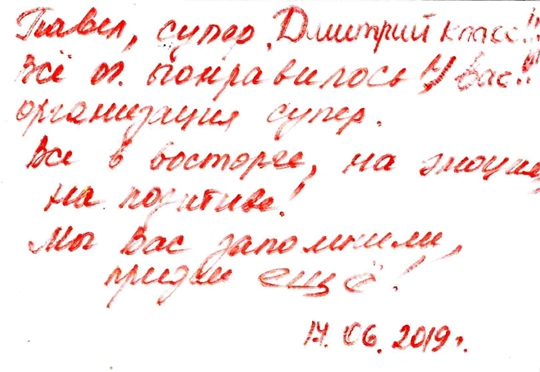 Павел, супер, Дмитрий класс!!
Всё оч. понравилось! У вас!!
организация супер.
Все в восторге, на эмоциях
на позитиве!
Мы вас запомнили,
придём ещё!
14.06.2019г.